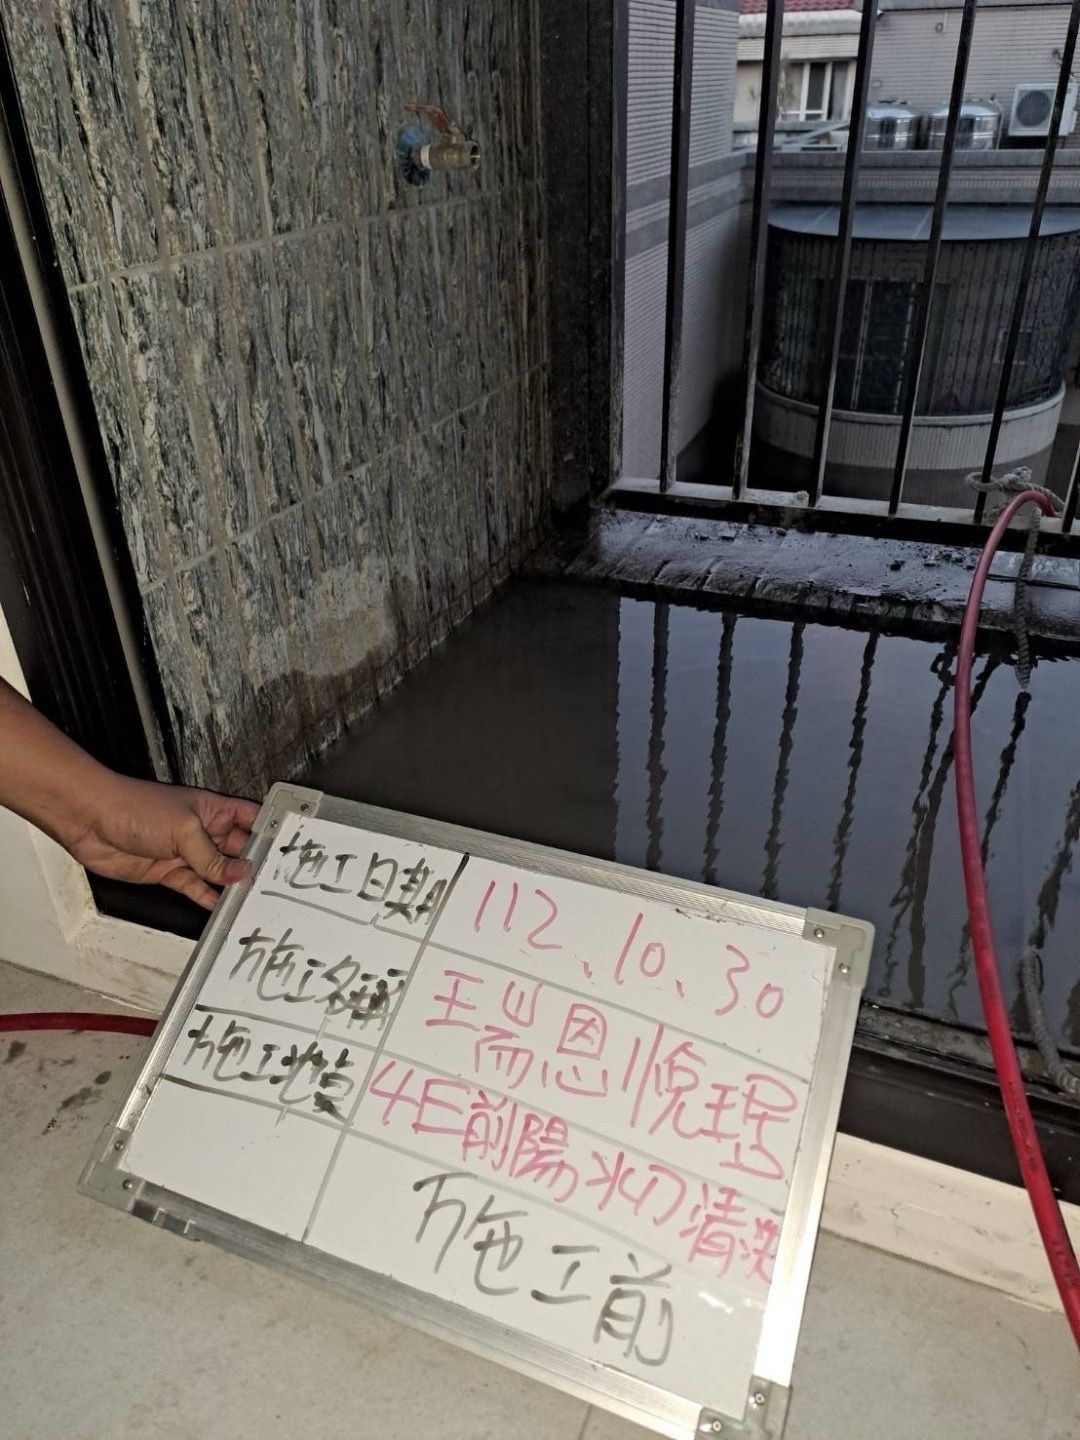 施工日期 112、10、30
施工名稱 瑞恩悅琚
施工地點 4E前陽水切清洗
施工前